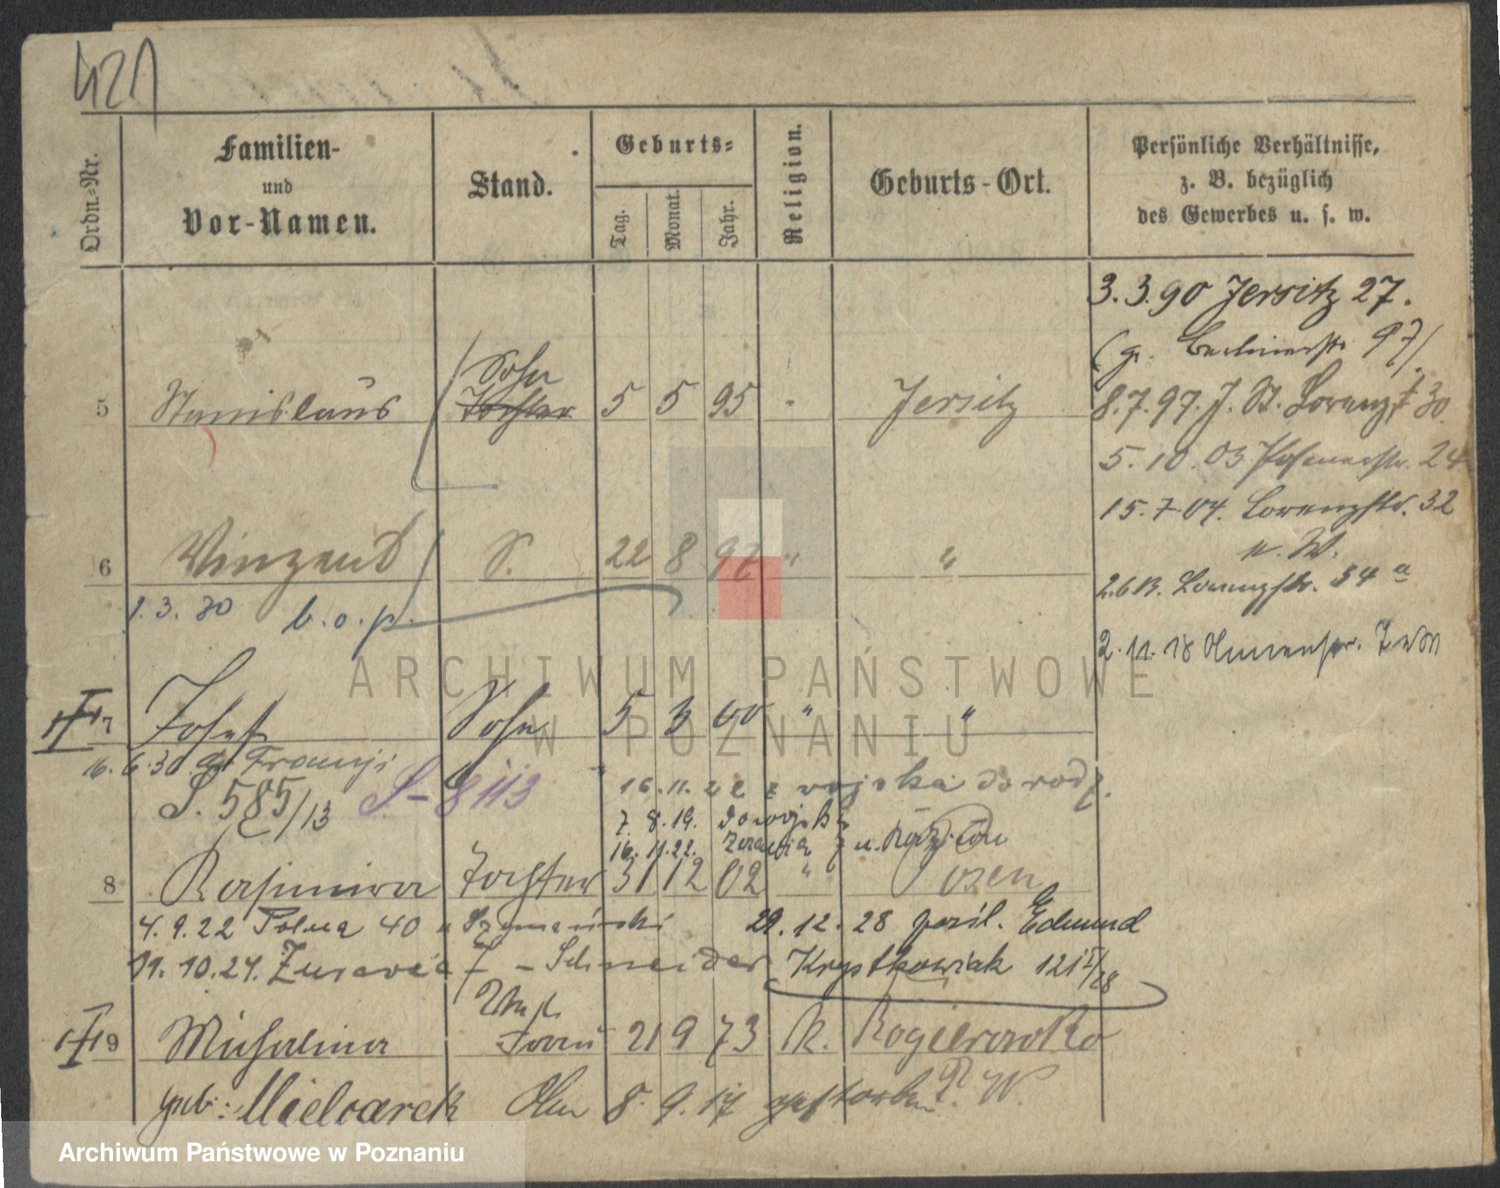 421
Ordn.-Nr.
Familien-
und
Vor-Namen.
Stand.
Geburts-
Tag.
Monat.
Jahr.
Religion.
Geburts-Ort.
Persönliche Verhältnisse,
z. B. bezüglich
des Gewerbes u. s. w.
3.3.90 Jersitz 27.
(gr. Berlinerstr. 97)
Sohn
5 Stanislaus Tochter 5 5 95 Jersitz
8.7.97. J. St. Lorenzstr 30
5.10.03 Posenerstr. 24
15.7.04. Lorenzstr. 32
n. W.
6 Vinzent S. 22 8 97 " "
Lorenzstr. 34 a
1.3.30 b.o.p.
2.11.18
7 Josef Sohn 5 3 00 " "
16.6.30
S. 585/13 S-8113
16.11.22 z wojska do rodz.
7.8.19. do wojska
16.11.22.
8 Kasimira Tochter 31 12 02 " Posen
4.9.22 Polna 40 u Szymański
29.12.28 pośl. Edmund
Krystkowiak 121 I/28
21.10.24. Żurawia 7 - Schneider
9 Michalina Frau 21 9 73 K. Rogierowko
geb: Mielcarek 8.9.17 gestorben
ARCHIWUM PAŃSTWOWE
W POZNANIU
Archiwum Państwowe w Poznaniu